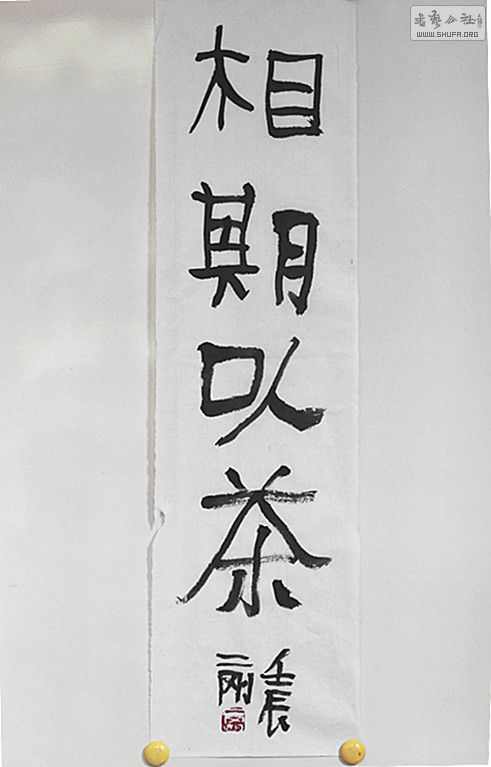 相期以茶
壬辰
二刚
書艺公社
WWW.SHUFA.ORG